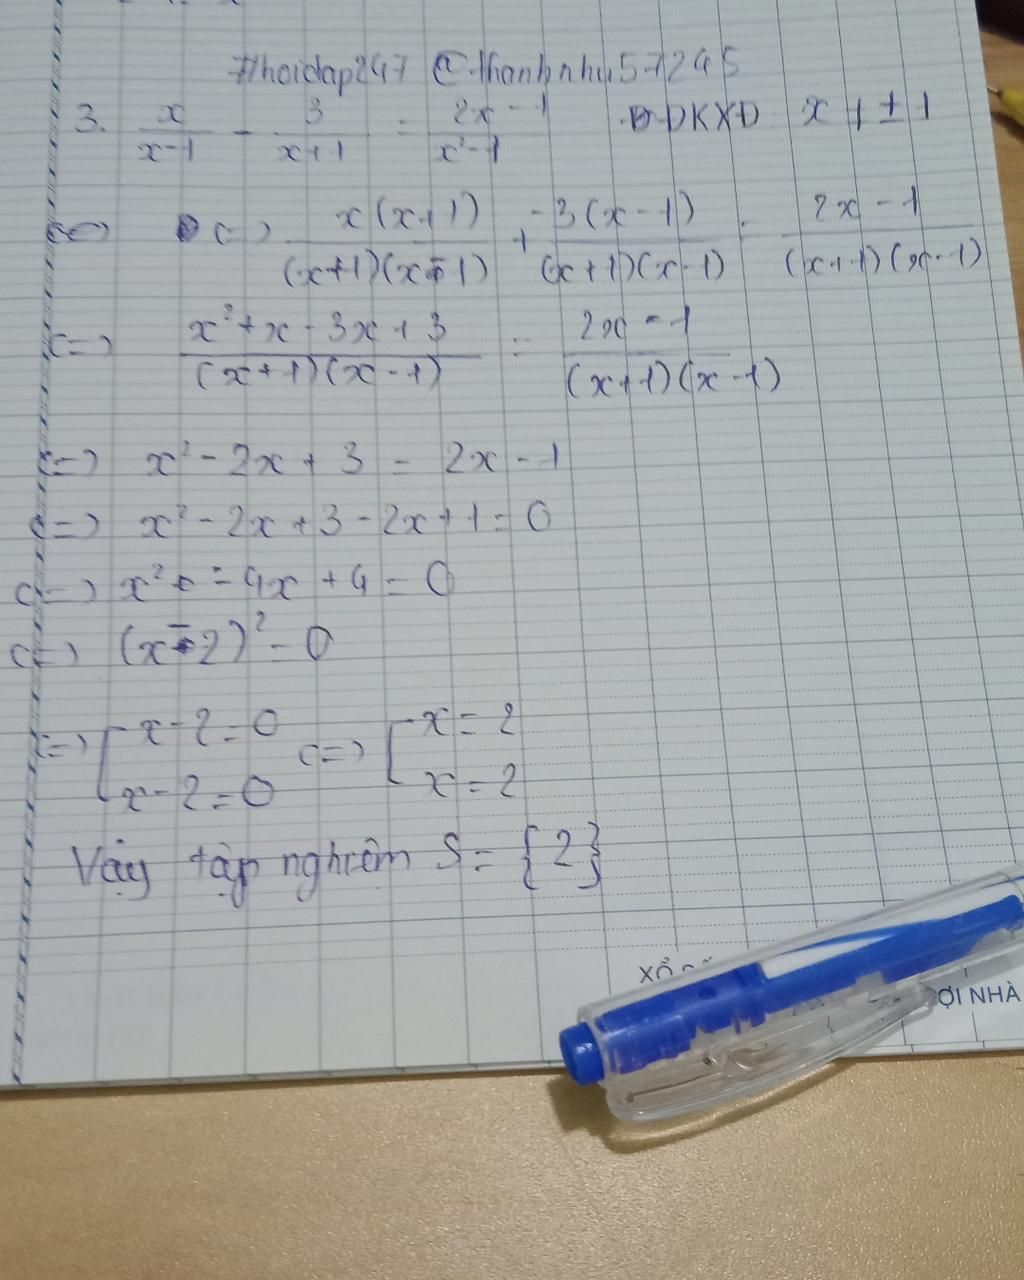 #hoidap247 @thanhnhu57245
3. x/(x-1) - 3/(x+1) = (2x-1)/(x²-1) DKXD x ≠ ±1
<=> x(x+1)/((x+1)(x-1)) + -3(x-1)/((x+1)(x-1)) = (2x-1)/((x+1)(x-1))
<=> (x²+x-3x+3)/((x+1)(x-1)) = (2x-1)/((x+1)(x-1))
<=> x²-2x+3 = 2x-1
<=> x²-2x+3-2x+1=0
<=> x²-4x+4=0
<=> (x-2)²=0
<=> [x-2=0 <=> [x=2
x-2=0 x=2
Vậy tập nghiệm S={2}
XỔ SỐ
ỢI NHÀ